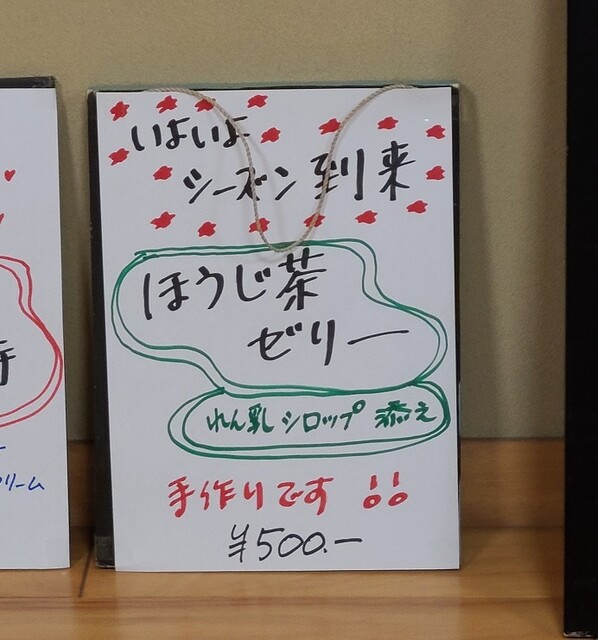 いよいよ
シーズン到来
ほうじ茶
ゼリー
れん乳シロップ添え
手作りです!!
¥500.-
リーム